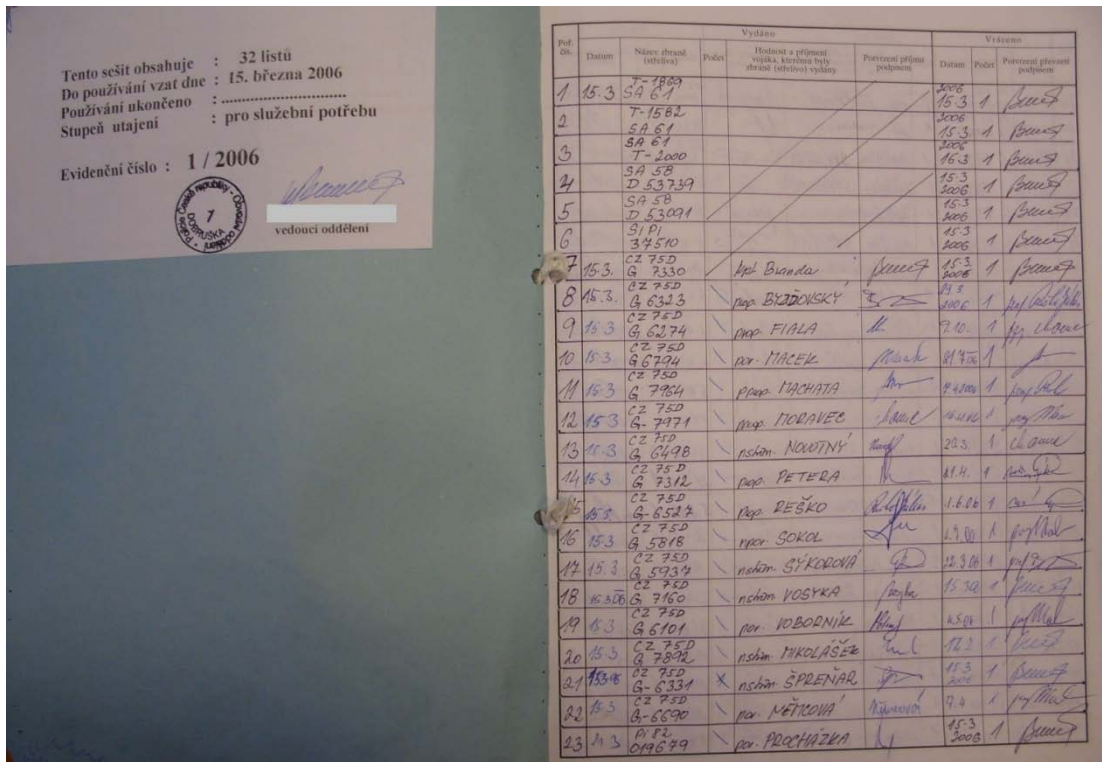 Tento sešit obsahuje : 32 listů
Do používání vzat dne : 15. března 2006
Používání ukončeno :
Stupeň utajení : pro služební potřebu
Evidenční číslo : 1 / 2006
Policie České republiky · Obvodní oddělení
1
DOBRUŠKA
vedoucí oddělení
Vydáno Vráceno
Poř. čís. Datum Název zbraně (střeliva) Počet Hodnost a příjmení vojáka, kterému byly zbraně (střelivo) vydány Potvrzení příjmu podpisem Datum Počet Potvrzení převzetí podpisem
1 15.3 T-1869 SA 61 2006 15.3 1
2 T-1582 SA 61 2006 15.3 1
3 SA 61 T-2000 2006 15.3 1
4 SA 58 D 53739 15.3 2006 1
5 SA 58 D 53091 15.3 2006 1
6 Si Pi 37510 15.3 2006 1
7 15.3. CZ 75D G 7330 Branda 15.3 2006 1
8 15.3. CZ 75D G 6323 prap. 2006 1
9 15.3 CZ 75D G 6274 prap. FIALA 9.10. 1
10 15.3 CZ 75D G 6794 por. MACEK 1
11 15.3 CZ 75D G 7964 pprap. MACHATA 1
12 15.3 CZ 75D G-7971 prap. MORAVEC 1
13 15.3 CZ 75D G 6498 nstržm. NOVOTNÝ 20.3. 1
14 15.3 CZ 75D G 7312 prap. PETERA 1
15 15.3. CZ 75D G-6527 prap. REŠKO 1.6.06 1
16 15.3 CZ 75D G 5818 npor. SOKOL 1
17 15.3 CZ 75D G 5937 nstržm. SÝKOROVÁ 22.3.06 1
18 15.3.06 CZ 75D G 7160 nstržm. VOSYKA 1
19 15.3 CZ 75D G 6101 por. VOBORNÍK
20 15.3 CZ 75D G 7892 nstržm. MIKOLÁŠEK 1
21 CZ 75D G-6331 nstržm. ŠPREŇAR 15.3 2006 1
22 15.3 CZ 75D G-6690 por. NĚMCOVÁ 7.4 1
23 Pi 82 019679 por. PROCHÁZKA 15.3 2006 1